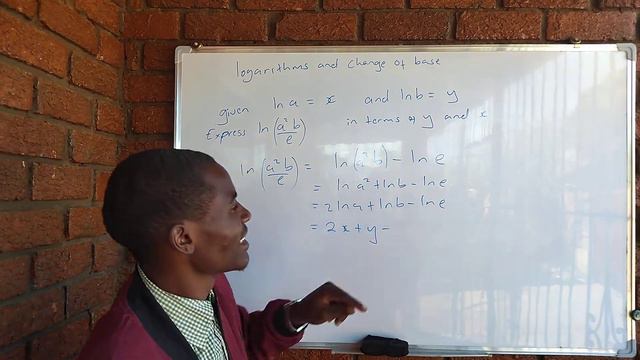 logarithms and Change of base
given ln a = x and ln b = y
Express ln(a²b/e) in terms of y and x
ln(a²b/e) = ln(a²b) - ln e
= ln a² + ln b - ln e
= 2 ln a + ln b - ln e
= 2x + y -